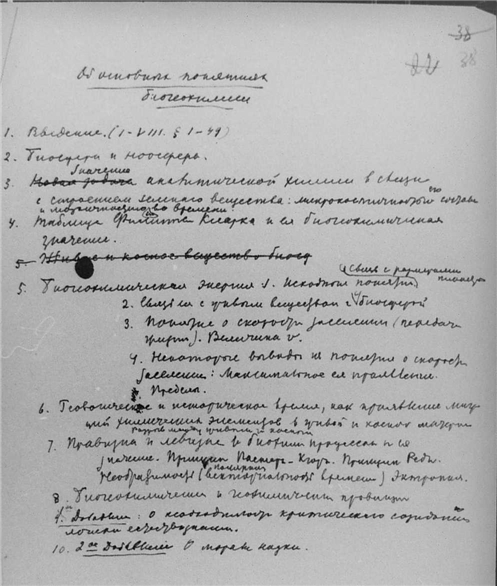 38
22 38
Об основных понятиях
биогеохимии
1. Введение. (I-VIII. § 1-49)
2. Биосфера и ноосфера.
Значение
3. Новая задача аналитической химии в связи
с строением земного вещества: микрокосмичность его состава
и мозаичность времени.
4. Таблица Филиппа Кларка и ея биогеохимическая
значение.
5. Живое и косное вещество биос
(связь с размерами планеты)
5. Биогеохимическая энергия 1. Исходные понятия
2. Связь с живым веществом и биосферой
3. Понятие о скорости заселения (передачи
жизни). Величина v.
4. Некоторые выводы из понятия о скорости
заселения: Максимальное ея проявление.
Пределы.
6. Геологическое и историческое время, как проявление
химических элементов в живой и косной материи
между живым и косным
7. Правизна и левизна в биохим процессах и ея
значение. Принцип Пастера-Кюри. Принцип Реди.
Необратимость (векториальность времени) Энтропия.
8. Биогеохимические и геохимические провинции
Добавление: о необходимости критического создания
логики естествознания.
10. 2ое Добавление О морали науки.